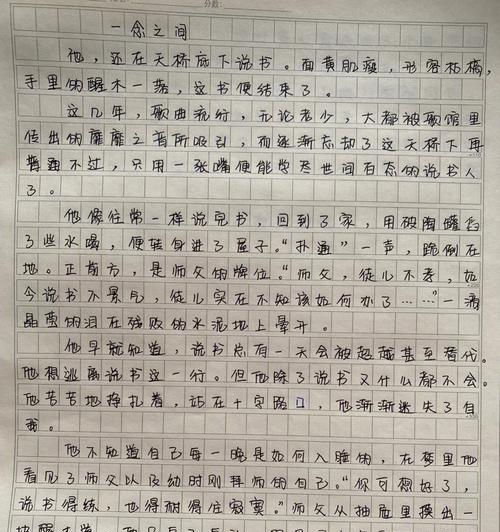 分数:
一念之间
他,还在天桥底下说书。面黄肌瘦,形容枯槁,
手里的醒木一落,这书便结束了。
这几年,歌曲流行,无论老少,大都被歌馆里
传出的靡靡之音所吸引,而逐渐忘却了这天桥下再
普通不过,只用一张嘴便能学尽世间百态的说书人
了。
他像往常一样说完书,回到了家,用破陶罐舀
了些水喝,便转身进了屋子。“扑通”一声,跪倒在
地。正前方,是师父的牌位。“师父,徒儿不孝,如
今说书不景气,徒儿实在不知该如何办了……”一滴
晶莹的泪在残败的水泥地上晕开。
他早就知道,说书总有一天会被超越甚至替代。
他想逃离说书这一行。但他除了说书又什么都不会。
他苦苦地挣扎着,站在十字路口,他渐渐迷失了自
我。
他不知道自己每一晚是如何入睡的,在梦里他
看见了师父以及幼时刚拜师的自己。“你可想好了,
说书得练,也得耐得住寂寞。”师父从抽屉里摸出一